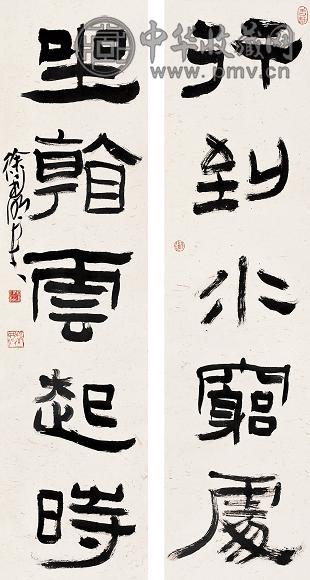 中华收藏网
www.pmv.cn
行到水窮處
坐看雲起時
徐